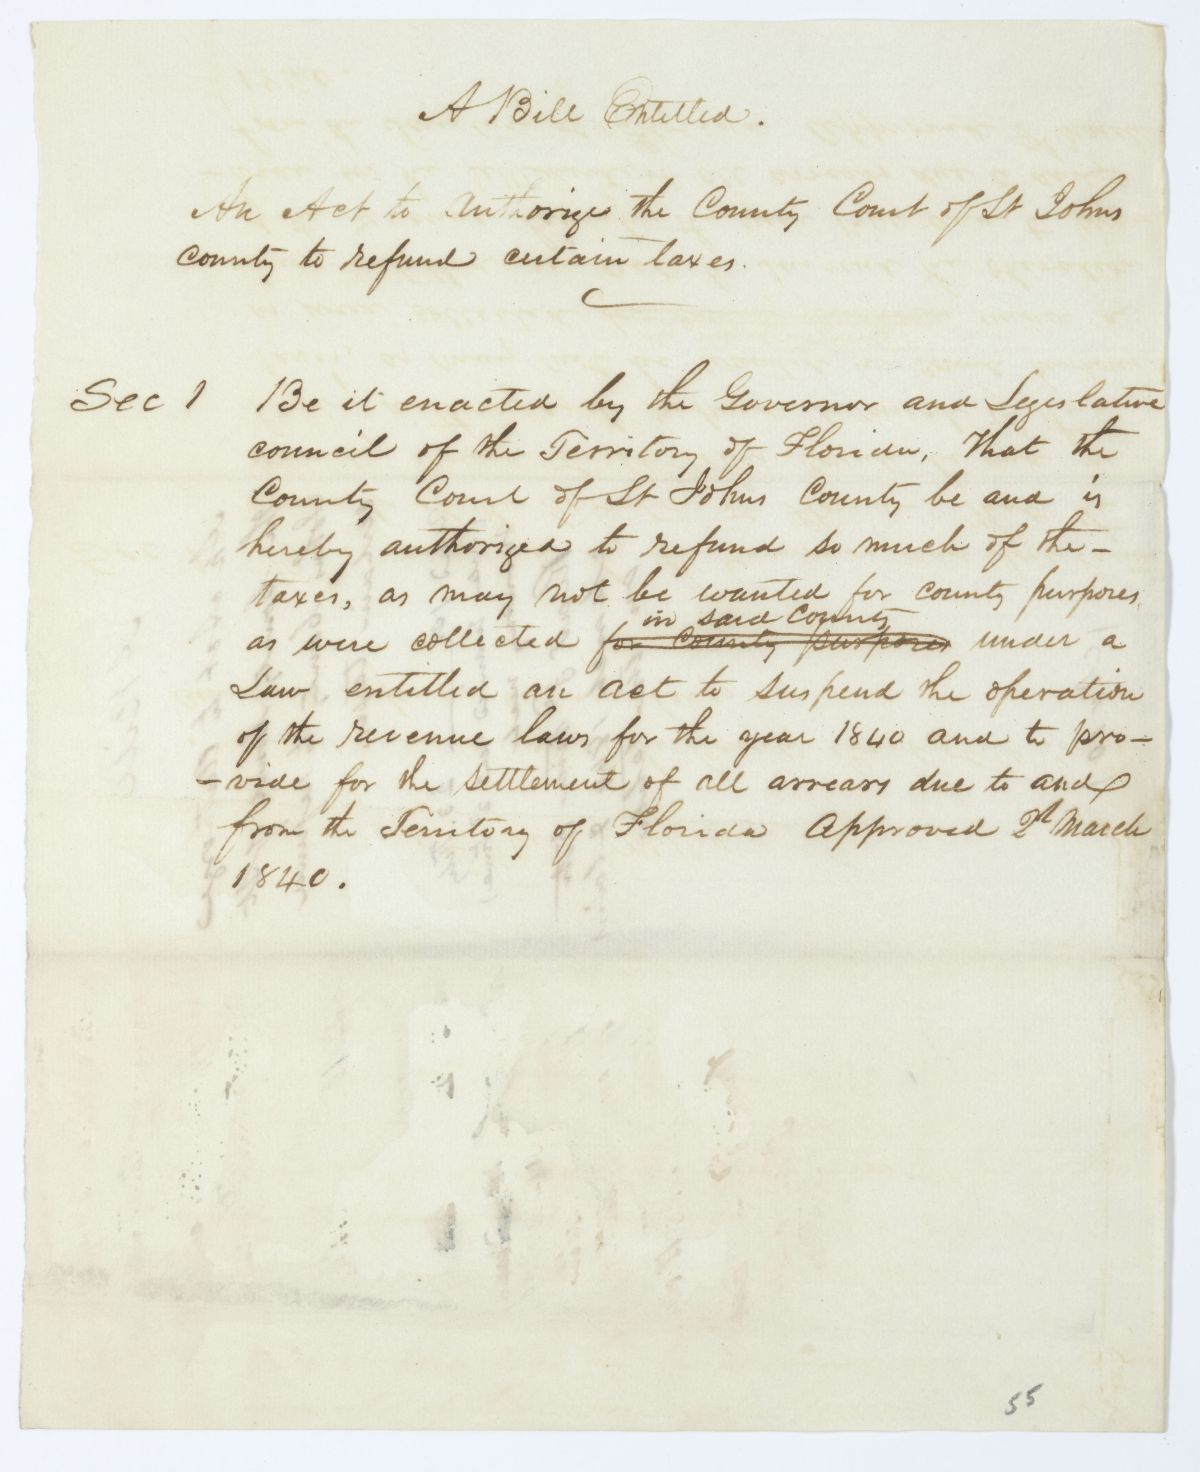 A Bill Entitled.
An Act to authorize the County Court of St Johns
county to refund certain taxes.
Sec 1 Be it enacted by the Governor and Legislative
council of the Territory of Florida, that the
County Court of St Johns County be and is
hereby authorized to refund so much of the-
taxes, as may not be wanted for county purposes,
in said County
as were collected for County purposes under a
Law entitled an act to suspend the operation
of the revenue laws for the year 1840 and to pro-
-vide for the settlement of all arrears due to and
from the Territory of Florida Approved 2d March
1840.
55